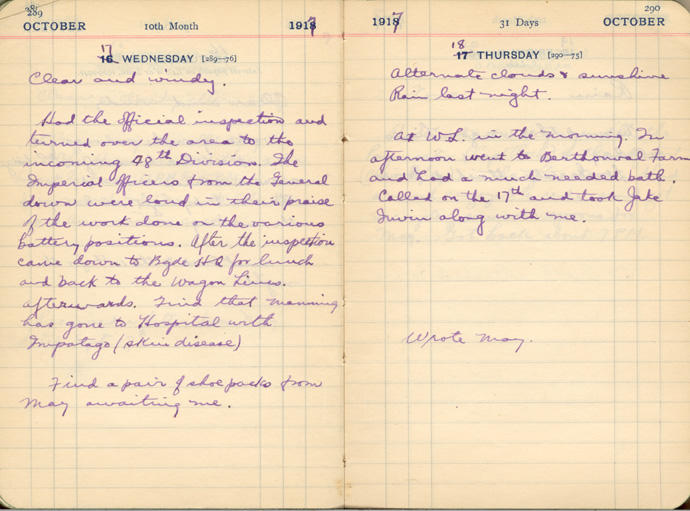 289
OCTOBER 10th Month 1917
17 WEDNESDAY [289–76]
Clear and windy.
Had the official inspection and
turned over the area to the
incoming 48th Division. The
Imperial officers from the General
down were loud in their praise
of the work done on the various
battery positions. After the inspection
came down to Bgde HQ for lunch
and back to the Wagon Lines.
afterwards. Find that Manning
has gone to Hospital with
Impatago (skin disease)
Find a pair of shoe packs from
May awaiting me.
290
1917 31 Days OCTOBER
18 THURSDAY [290–75]
Alternate clouds & sunshine
Rain last night.
At W.L. in the morning. In
afternoon went to Berthonval Farm
and had a much needed bath.
Called on the 17th and took Jake
Irwin along with me.
Wrote May.